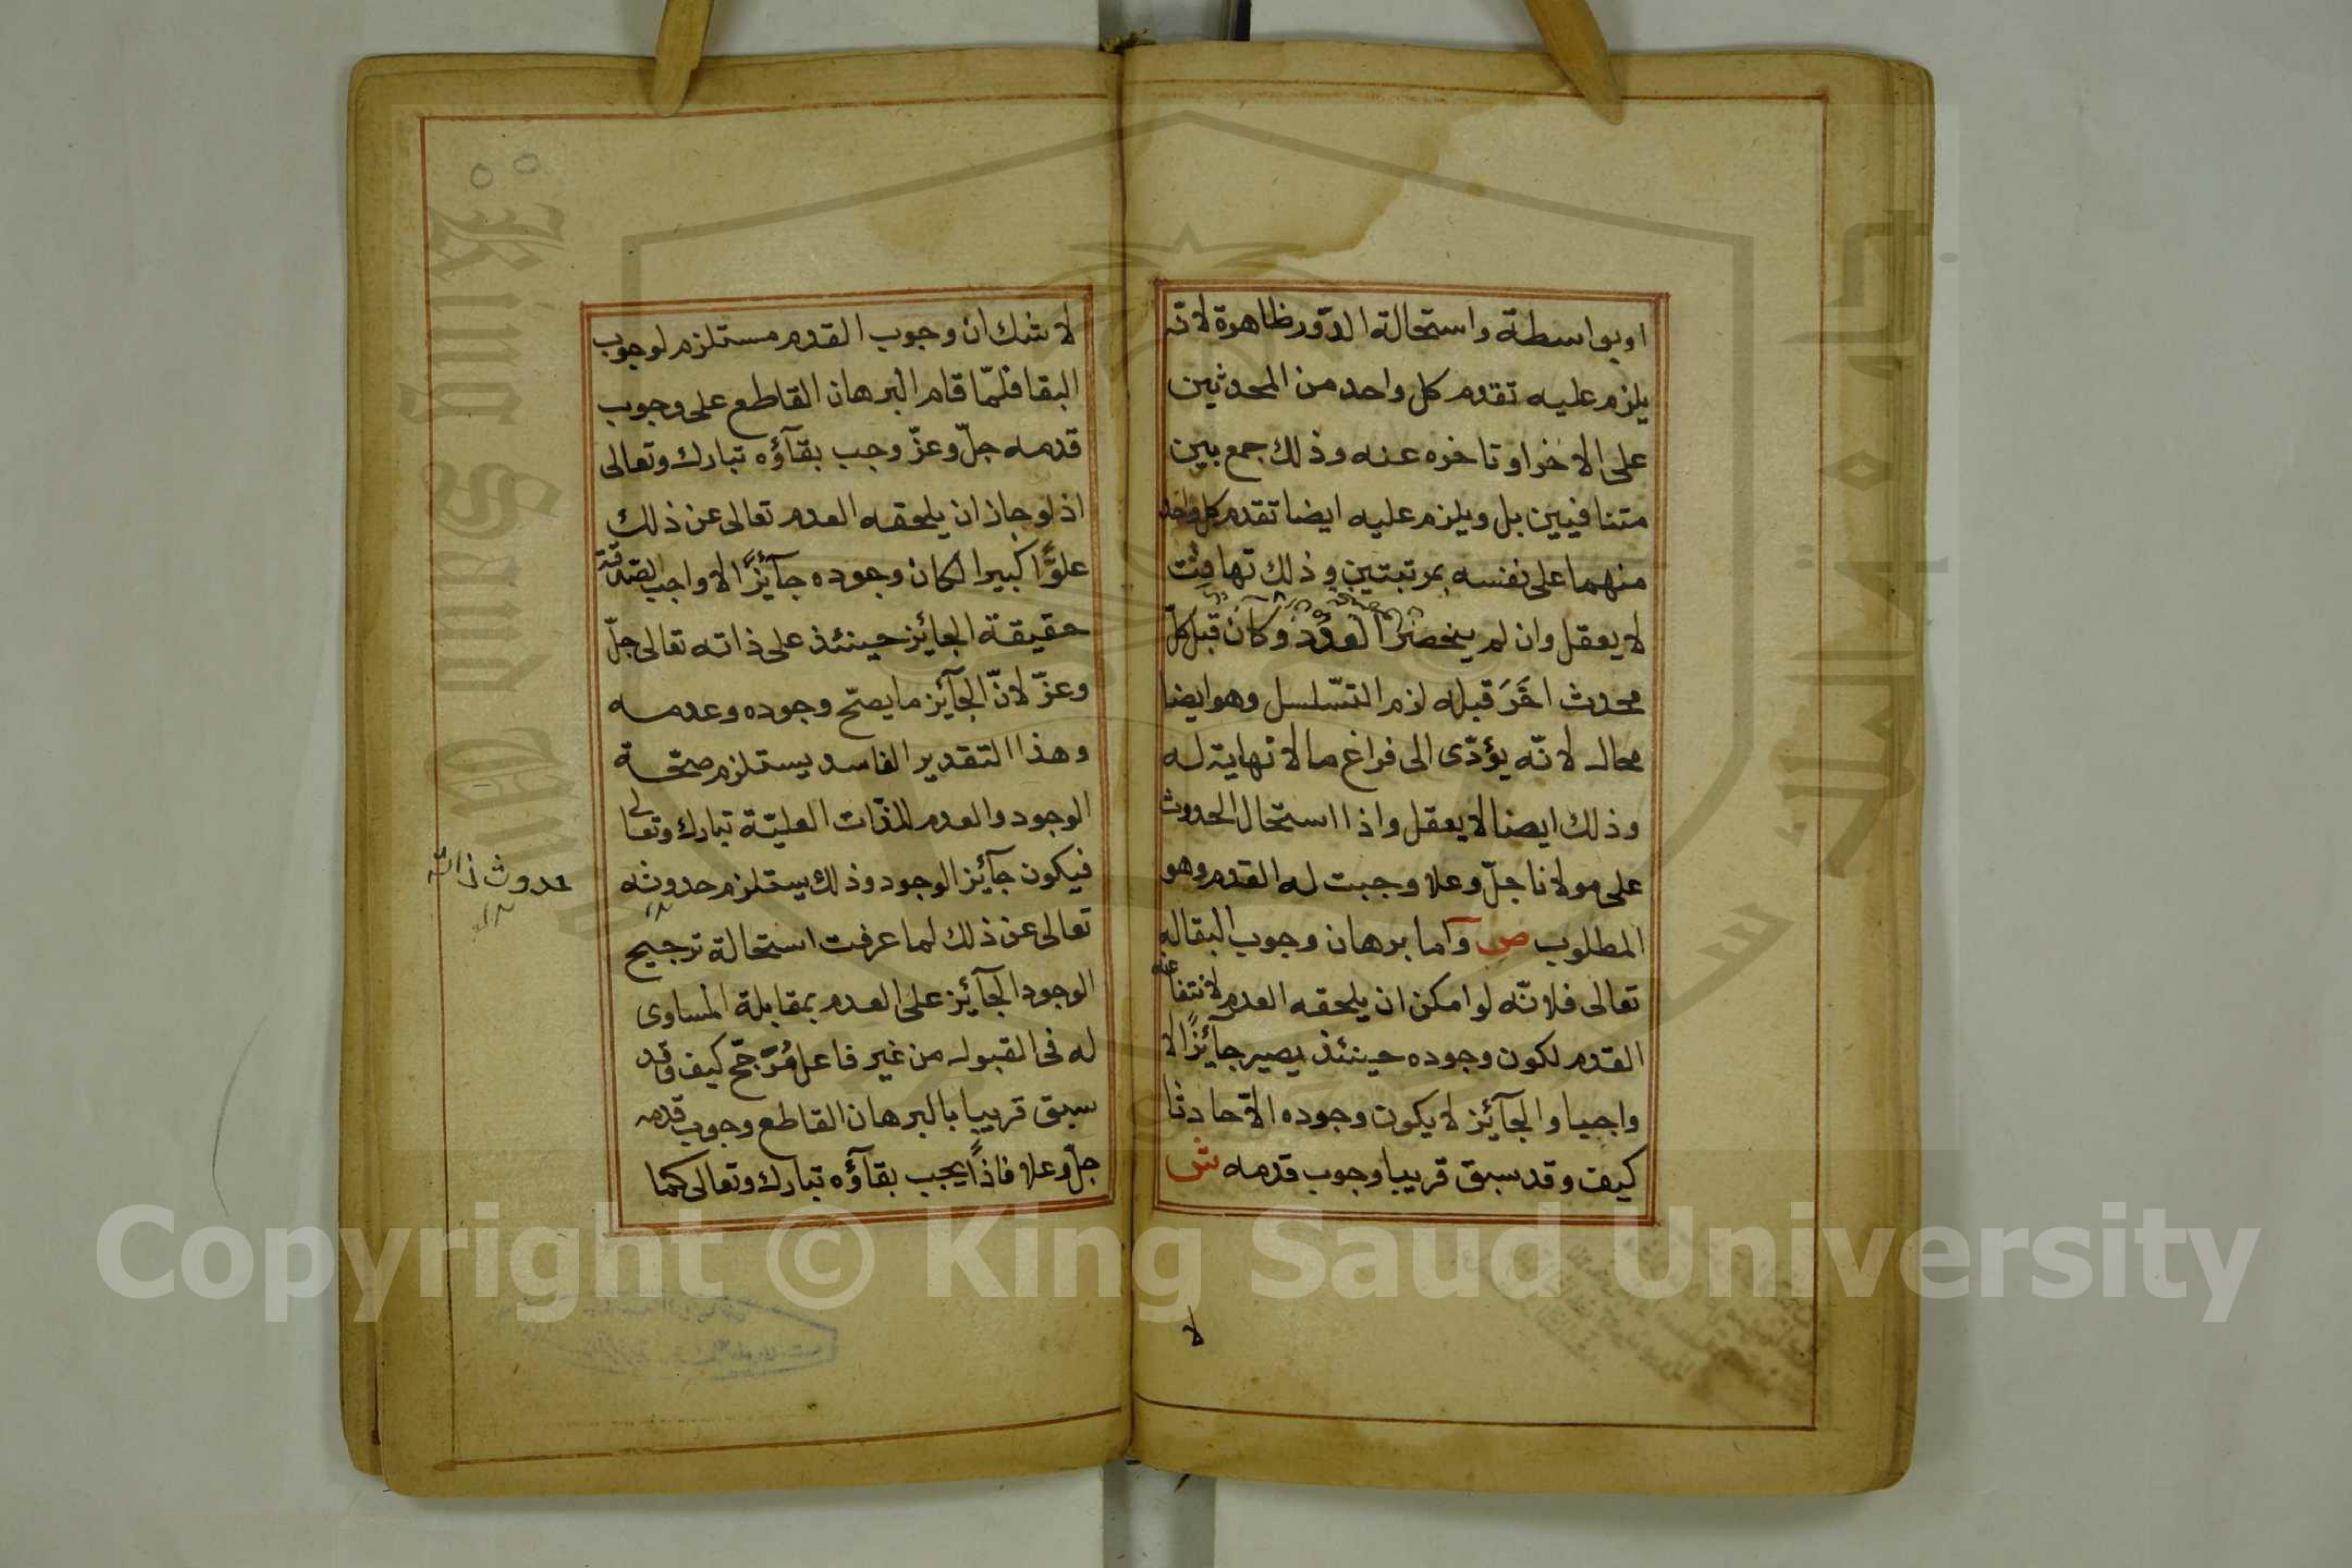 او بواسطة واستحالة الدّور ظاهرة لانّه
يلزم عليه تقدم كل واحد من المحدثين
على الاخر او تاخره عنه وذلك جمع بين
متنافيين بل ويلزم عليه ايضا تقدم كل واحد
منهما على نفسه بمرتبتين وذلك تهافت
لا يعقل وان لم ينحصر العدد وكان قبل كلّ
محدث اخَرَ قبله لزم التّسلسل وهو ايضا
محال لانّه يؤدّى الى فراغ ما لا نهاية له
وذلك ايضا لا يعقل واذا استحال الحدوث
على مولانا جلّ وعلا وجبت له القدم وهو
المطلوب ص وآما برهان وجوب البقا له
تعالى فلانّه لو امكن ان يلحقه العدم لانتفا عنه
القدم لكون وجوده حينئذ يصير جآئزًا لا
واجبا والجآئز لا يكون وجوده الاّ حادثا
كيف وقد سبق قريبا وجوب قدمه ش
لا
لا شك ان وجوب القدم مستلزم لوجوب
البقا فلمّا قام البرهان القاطع على وجوب
قدمه جلّ وعزّ وجب بقآؤه تبارك وتعالى
اذ لو جاز ان يلحقه العدم تعالى عن ذلك
علوًّا كبيرا لكان وجوده جآئزًا لا واجب لصدقة
حقيقة الجائز حينئذ على ذاته تعالى جلّ
وعزّ لانّ الجآئز ما يصحّ وجوده وعدمه
وهذا التقدير الفاسد يستلزم صحّة
الوجود والعدم للذّات العليّة تبارك وتعالى
فيكون جآئز الوجود وذلك يستلزم حدوثه
حدوث ذاته
تعالى عن ذلك لما عرفت استحالة ترجيح
الوجود الجآئز على العدم بمقابلة المساوى
له فى القبول من غير فاعل مُرَجّح كيف وقد
سبق قريبا بالبرهان القاطع وجوب قدمه
جلّ وعلا فاذًا يجب بقآؤه تبارك وتعالى كما
Copyright © King Saud University